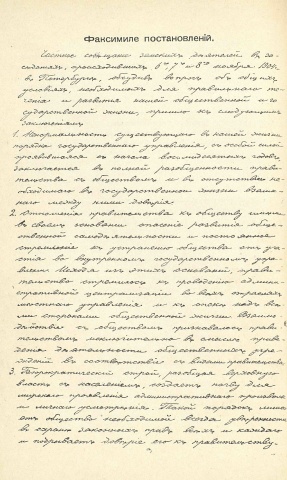 Факсимиле постановленій.
Частное совѣщаніе земскихъ дѣятелей въ за-
сѣданіяхъ, происходившихъ 6го, 7го и 8го ноября 1904 г.
въ Петербургѣ, обсудивъ вопросъ объ общихъ
условіяхъ необходимыхъ для правильнаго те-
ченія и развитія нашей общественной и го-
сударственной жизни, пришло къ слѣдующимъ
заключеніямъ:
1. Ненормальность существующаго въ нашей жизни
порядка государственнаго управленія, съ особой силой
проявившаяся съ начала восьмидесятыхъ годовъ,
заключается въ полной разобщенности прави-
тельства съ обществомъ и въ отсутствіи не-
обходимаго въ государственной жизни взаим-
наго между ними довѣрія.
2. Отношенія правительства къ обществу имѣли
въ своемъ основаніи опасеніе развитія обще-
ственной самодѣятельности и постоянное
стремленіе къ устраненію общества отъ уча-
стія во внутреннемъ государственномъ упра-
вленіи. Исходя изъ этихъ основаній, прави-
тельство стремилось къ проведенію админи-
стративной централизаціи во всѣхъ отрасляхъ
мѣстнаго управленія и къ опекѣ надъ всѣ-
ми сторонами общественной жизни. Взаимо-
дѣйствіе съ обществомъ признавалось прави-
тельствомъ исключительно въ смыслѣ приве-
денія дѣятельности общественныхъ учре-
жденій въ соотвѣтствіе съ видами правительства.
3. Бюрократическій строй, разобщая верховную
власть съ населеніемъ, создаетъ почву для
широкаго проявленія административнаго произвола
и личнаго усмотрѣнія. Такой порядокъ лиша-
етъ общество необходимой всегда увѣренности
въ охранѣ законныхъ правъ всѣхъ и каждаго
и подрываетъ довѣріе его къ правительству.